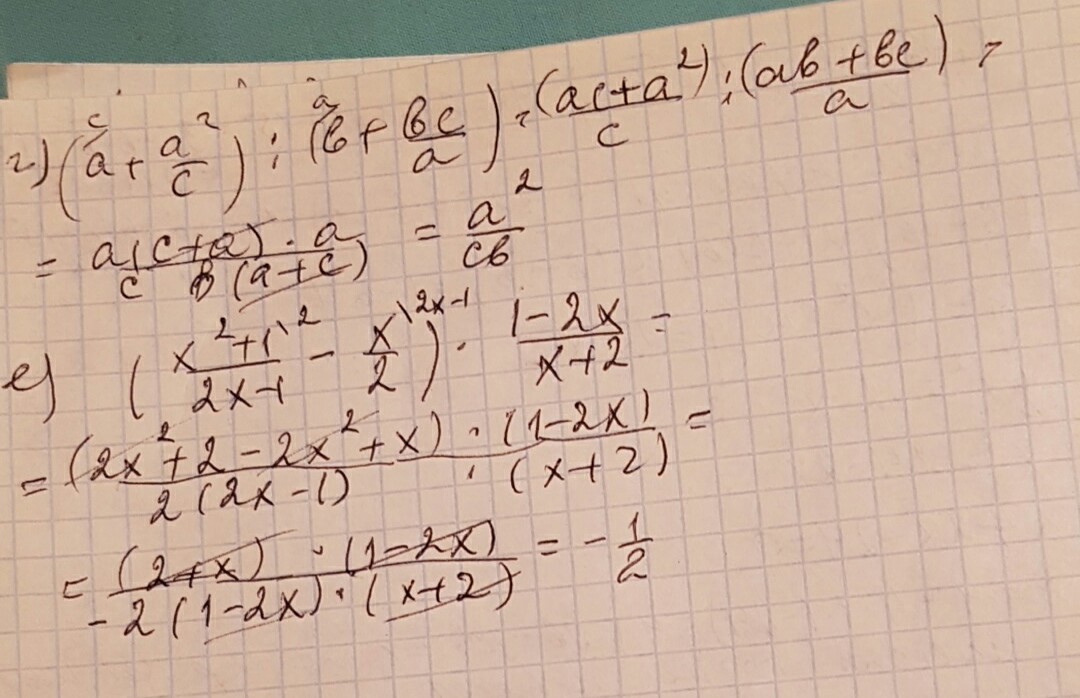 г) (a^c + a²/c) : (b^a + bc/a) = (ac+a²)/c : (ab+bc)/a =
= a(c+a)·a / c b(a+c) = a²/cb
е) ((x²+1)^\2/(2x-1) - x^\2x-1/2) · (1-2x)/(x+2) =
= (2x²+2-2x²+x)/2(2x-1) · (1-2x)/(x+2) =
= (2+x)·(1-2x) / -2(1-2x)·(x+2) = -1/2